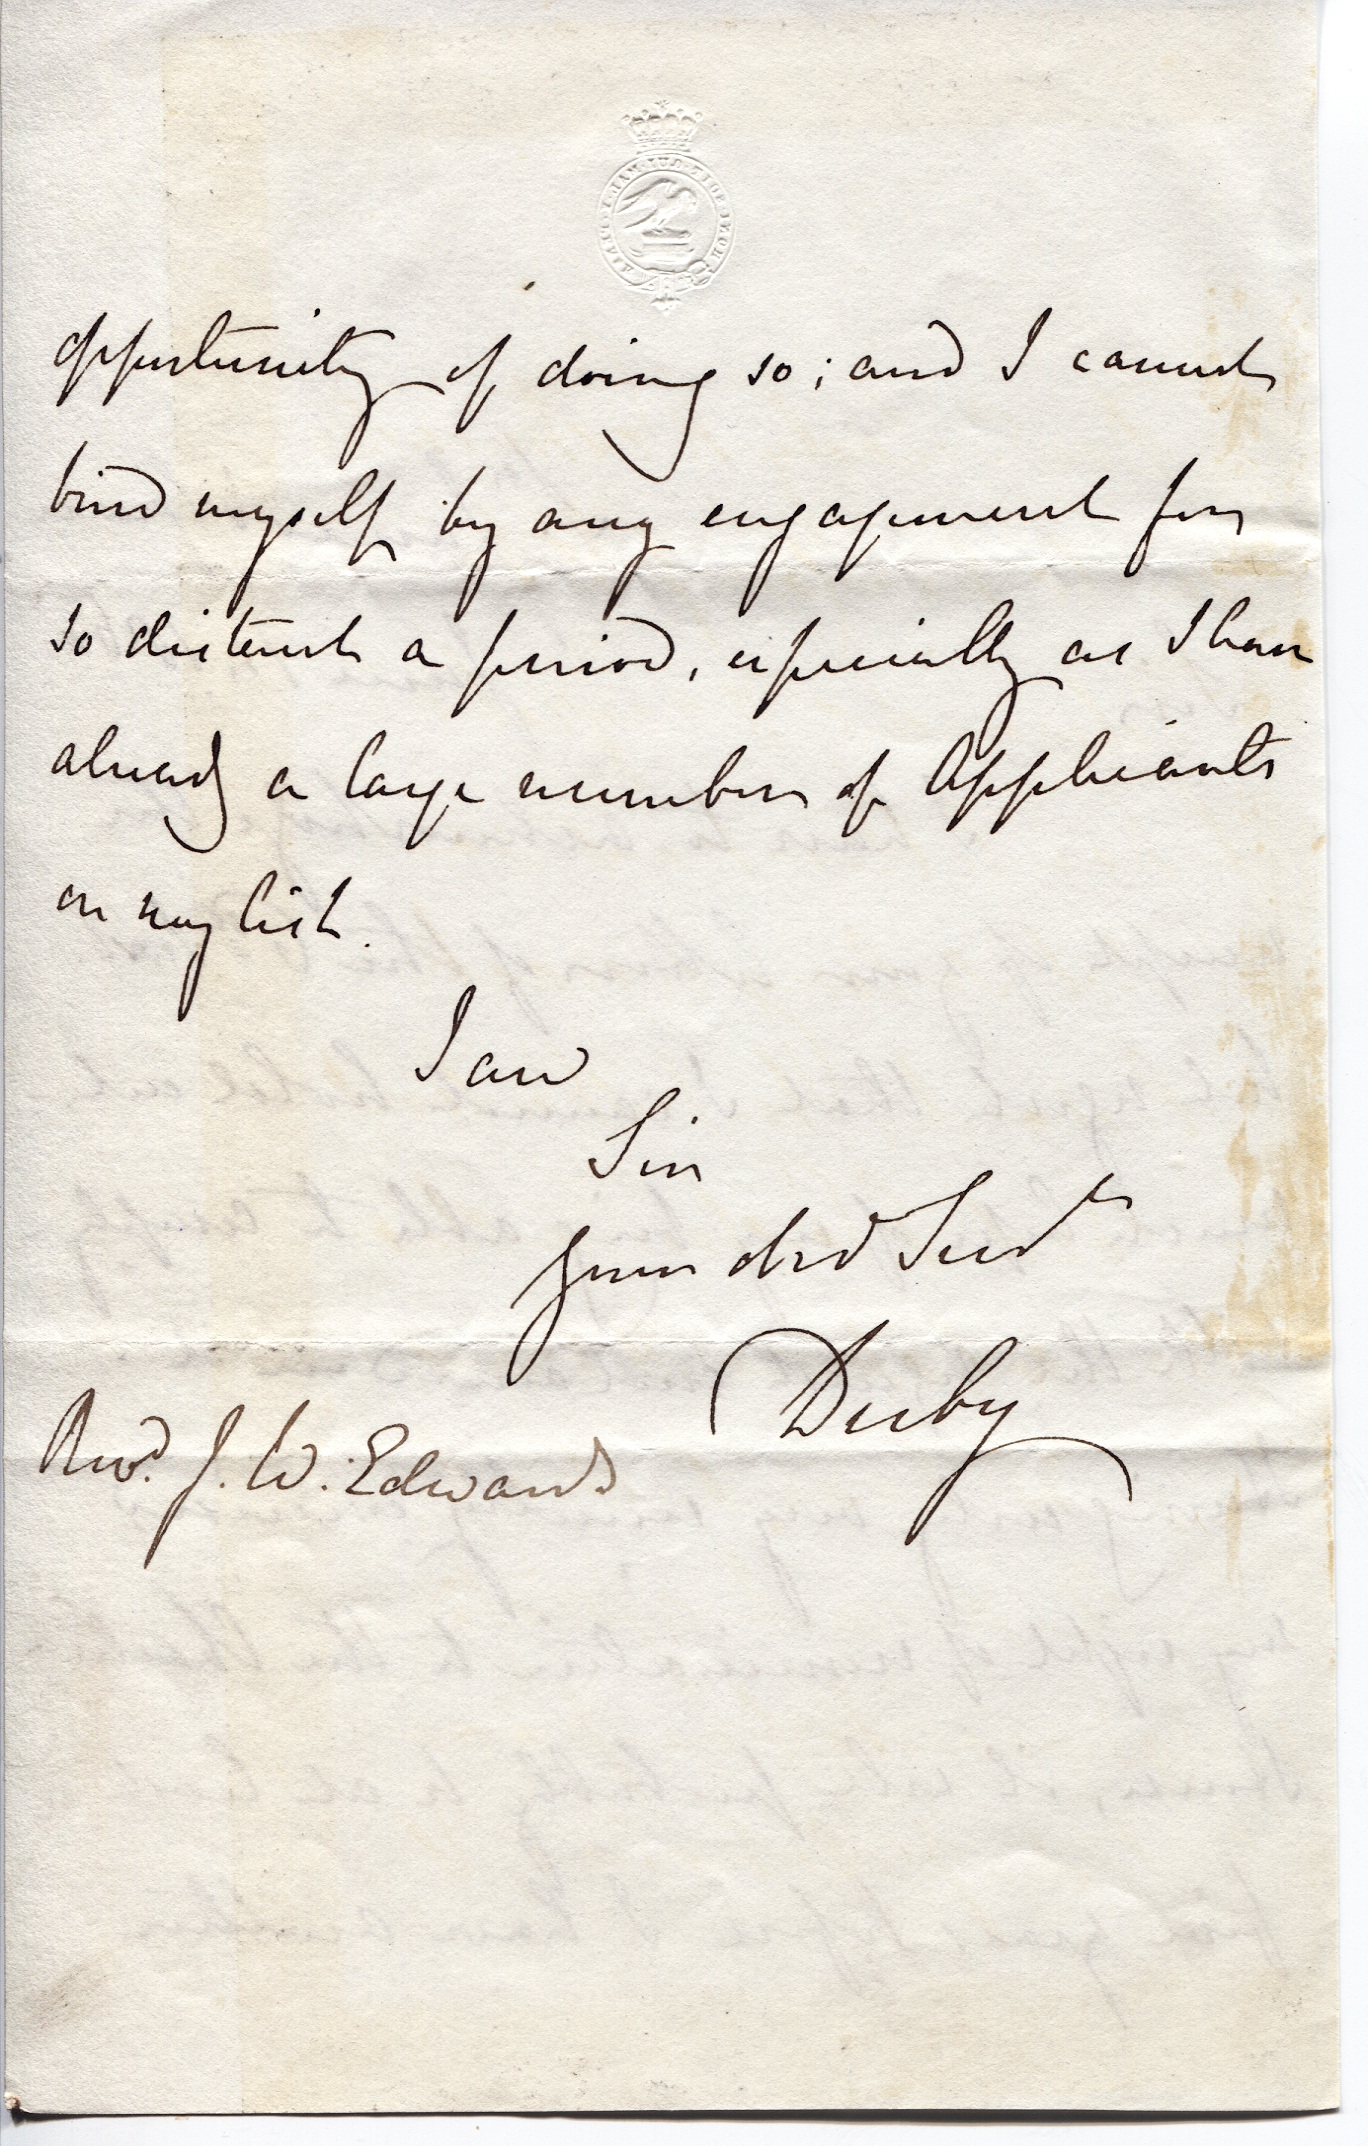 opportunity of doing so; and I cannot
bind myself by any engagement for
so distant a period, especially as I have
already a large number of Applicants
on my list.
I am
Sir
Your obed Servt
Derby
Revd. J. W. Edwards